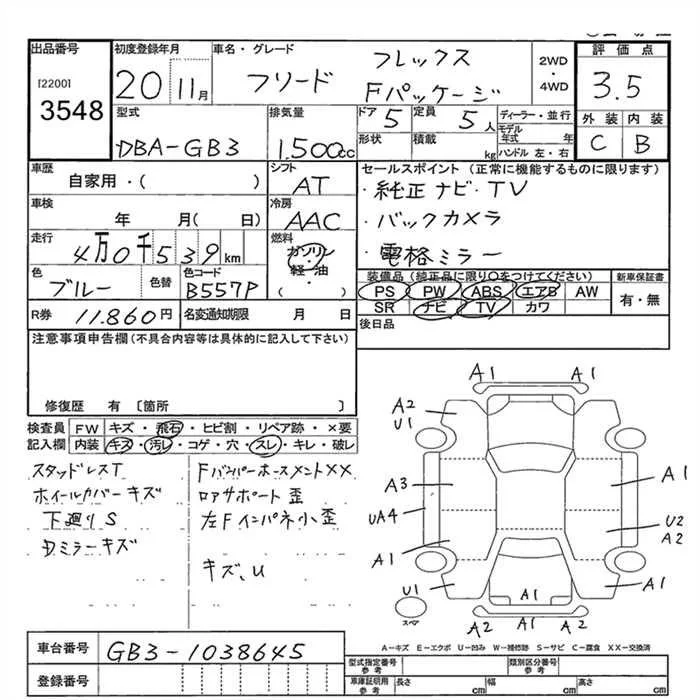 出品番号 初度登録年月 車名・グレード 評価点
[2200]
3548
20 11月
フリード フレックス
Fパッケージ
2WD
・
4WD
3.5
型式 排気量 ドア 定員 ディーラー・並行 外装 内装
DBA-GB3 1.500cc 5 5人
形状 積載 kg モデル年式 年
ハンドル 左・右
C B
車歴 シフト セールスポイント(正常に機能するものに限ります)
自家用・( ) AT ・純正ナビ・TV
車検 冷房
年 月( 日) AAC ・バックカメラ
走行 燃料
4万0千539km ガソリン ・電格ミラー
軽油
・( )
色 色替 色コード
ブルー B557P
装備品(純正品に限り○をつけてください) 新車保証書
PS PW ABS エアB AW 有・無
SR ナビ TV カワ
R券 11.860円 名変通知期限 月 日
後日品
注意事項申告欄(不具合内容等は具体的に記入して下さい)
修復歴 有 〔箇所 〕
検査員記入欄 FW キズ・飛石・ヒビ割・リペア跡・×要
内装 キズ・汚レ・コゲ・穴・スレ・キレ・破レ
スタッドレスT
ホイールカバーキズ
下廻りS
Dミラーキズ
Fバンパーホースメント××
ロアサポート歪
左Fインパネ小歪
キズ、U
A1 A1
A2
U1
A3 A1
UA4
U2
A2
A1
U1 A1 A1
A2 A1 A2
スペア
A-キズ E-エクボ U-凹み W-補修跡 S-サビ C-腐食 XX-交換済
車台番号 GB3-1038645
登録番号
型式指定番号 参考 類別区分番号 参考
車庫証明用 参考 長さ cm 幅 cm 高さ cm